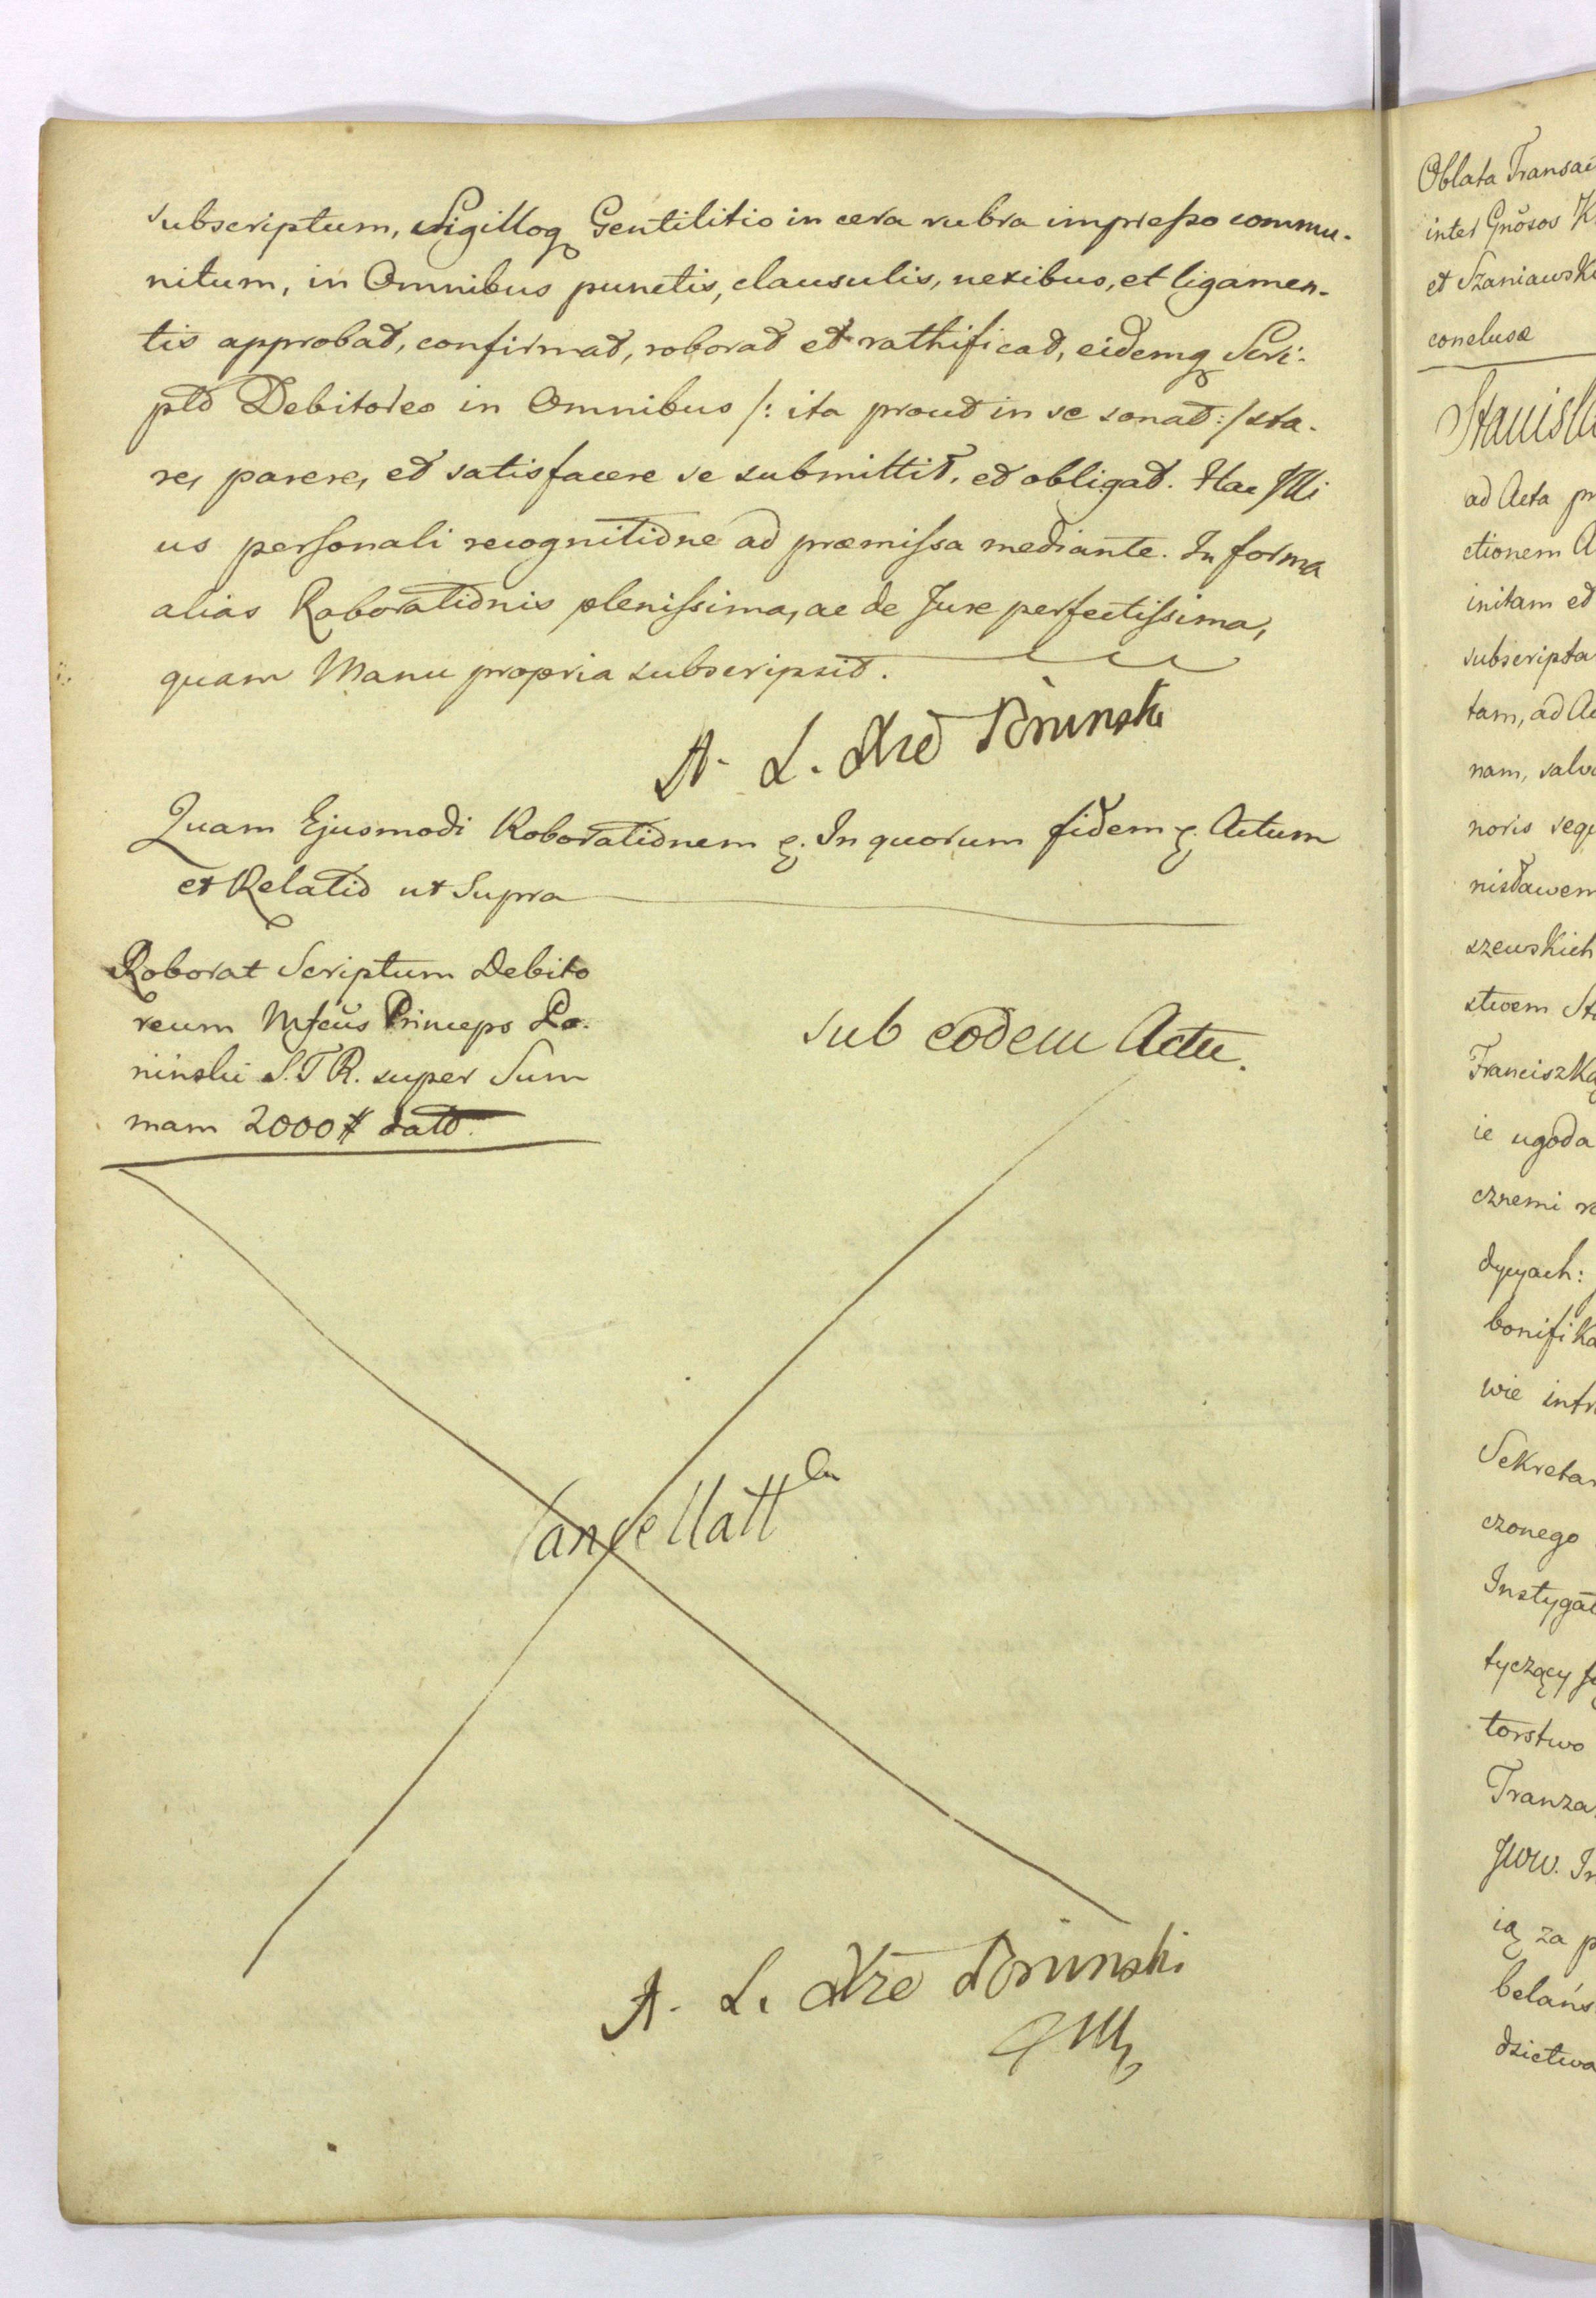 subscriptum, Sigilloq Gentilitio in cera rubra impresso commu-
nitum, in Omnibus punctis, clausulis, nexibus, et ligamen-
tis approbat, confirmat, roborat et rathificat, eidemq Scri-
pto Debitoreo in Omnibus /: ita prout in se sonat :/ sta-
re, parere, et satisfacere se submittit, et obligat. Hac Illi
us personali recognitione ad præmissa mediante. In forma
alias Roborationis plenissima, ac de Jure perfectissima,
quam Manu propria subscripsit.
A. L. Xże Poninski
Quam Ejusmodi Roborationem &. In quorum fidem &. Actum
et Relatio ut Supra
Roborat Scriptum Debito
reum Mfcus Princeps Po-
ninski S.T.R. super Sum
mam 2000 # dato.
sub eodem Actu.
Cancellatt
A. L. Xże Poninski
Oblata Transac
inter Gnosos K
et Szaniawski
conclusæ
Stanisla
ad Acta pr
ctionem A
initam et
subscripta
tam, ad Ac
nam, salv
noris sequ
nisławem
szewskich
stwem St
Franciszką
ie ugoda
cznemi r
dycyach:
bonifika
wie intr
Sekretar
czonego
Instygat
tyczący si
torstwo
Tranza
JWW. In
ią za p
belańs
dzictwa